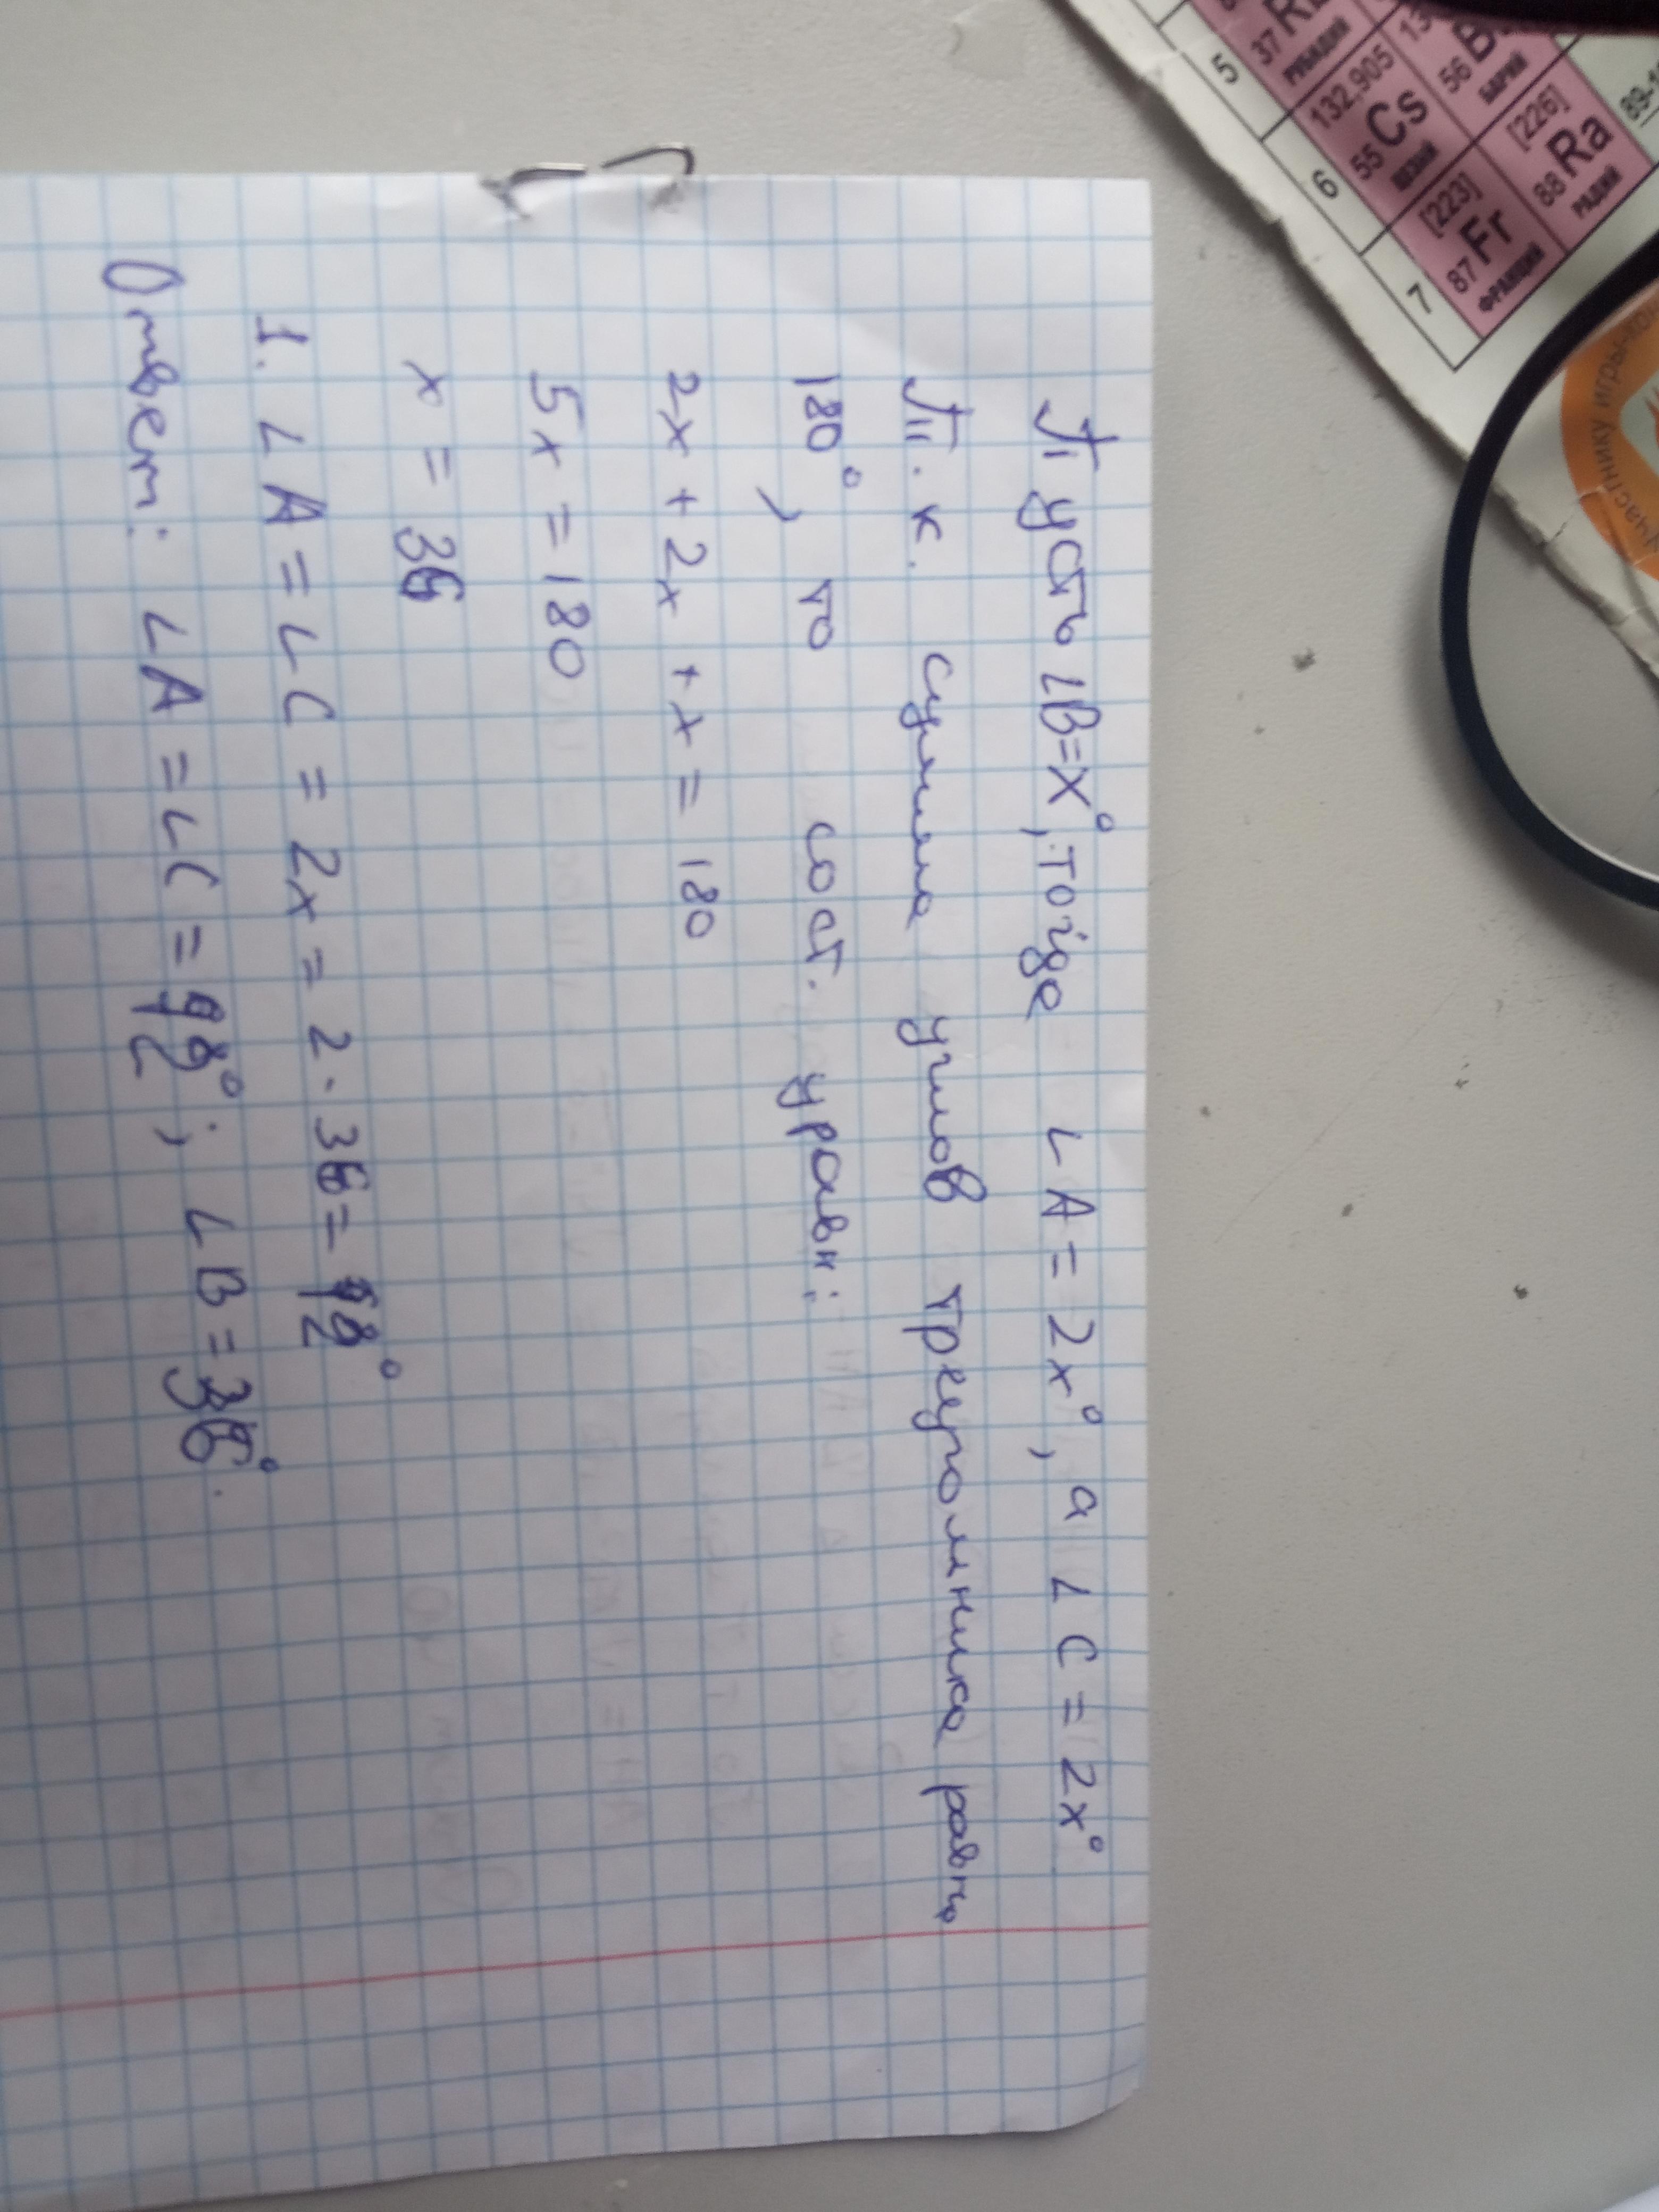 Пусть ∠B=x°, тогда ∠A=2x°, а ∠C=2x°
Т.к. сумма углов треугольника равна
180°, то сост. уравн:
2x+2x+x=180
5x=180
x=36
1. ∠A=∠C=2x=2·36=72°
Ответ: ∠A=∠C=72°; ∠B=36°.
5
37
РУБИДИЙ
6
132,905
55 Cs
ЦЕЗИЙ
56
БАРИЙ
7
[223]
87 Fr
ФРАНЦИЙ
[226]
88 Ra
РАДИЙ
участнику игры-кон